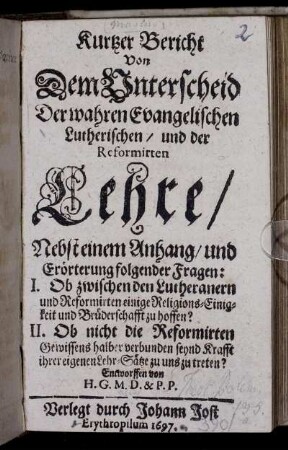 2
Kurtzer Bericht
Von
Dem Unterscheid
Der wahren Evangelischen
Lutherischen / und der
Reformirten
Lehre /
Nebst einem Anhang / und
Erörterung folgender Fragen:
I. Ob zwischen den Lutheranern
und Reformirten einige Religions-Einig-
keit und Brüderschafft zu hoffen?
II. Ob nicht die Reformirten
Gewissens halber verbunden seynd Krafft
ihrer eigenen Lehr-Sätze zu uns zu treten?
Entworffen von
H. G. M. D. & P. P.
Verlegt durch Johann Jost
Erythropilum 1697.